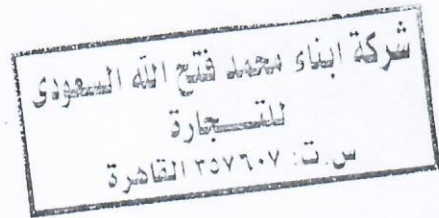 شركة ابناء محمد فتح الله السعودى
للتـــجارة
س.ت: ٣٥٧٦٠٧ القاهرة